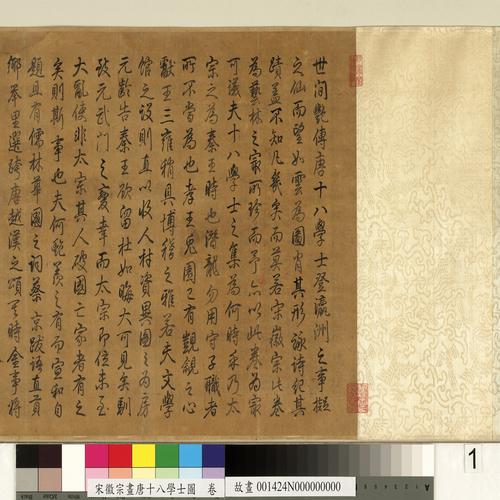 世間艷傳唐十八學士登瀛洲之事擬
之仙而望如雲為圖肖其形詠詩紀其
蹟蓋不知凡幾矣而莫若宋徽宗此卷
為藝林之家所珍而予亦以此卷為家
可議夫十八學士之集為何時乎乃太
宗之為秦王時也潛龍勿用守子職者
所不當為也孝王兔園已有覬覦之心
獻王三雍稍具博稽之雅若天文學
館之設則直以收人材資異圖之為房
元齡告秦王欲留杜如晦大可見矣馴
致元武門之變幸而太宗即位未至
大亂使非太宗其人敗國亡家者有之
矣則斯事也夫何艷羨之有而宣和自
題且有儒林華國之詞蔡京跋語直貢
鄉舉里選跨唐越漢之頌其時金事將
宋徽宗畫唐十八學士圖 卷
故畫 001424N000000000
1